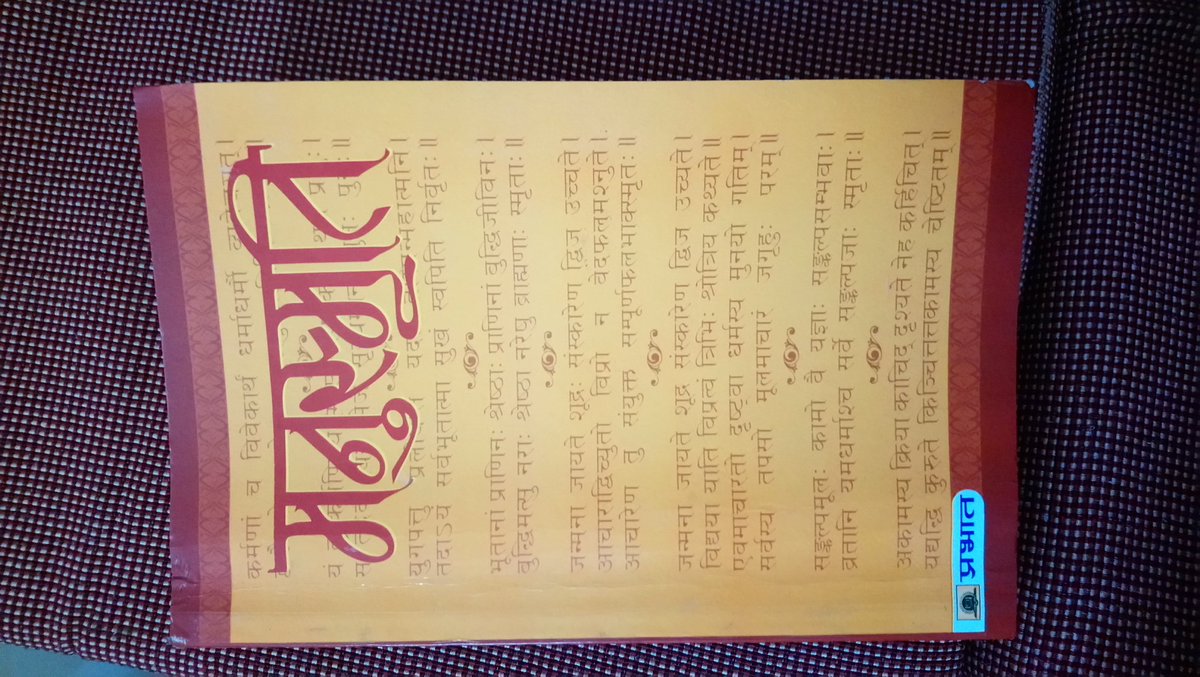 मनुस्मृति
कर्मणां च विवेकार्थं धर्माधर्मौ
युगपत्तु
तदाऽयं सर्वभूतात्मा सुखं स्वपिति निर्वृतः॥
भूतानां प्राणिनः श्रेष्ठाः प्राणिनां बुद्धिजीविनः।
बुद्धिमत्सु नराः श्रेष्ठा नरेषु ब्राह्मणाः स्मृताः॥
जन्मना जायते शूद्रः संस्कारेण द्विज उच्यते।
आचाराद्विच्युतो विप्रो न वेदफलमश्नुते
आचारेण तु संयुक्तः सम्पूर्णफलभाक्स्मृतः॥
जन्मना जायते शूद्रः संस्कारेण द्विज उच्यते।
विद्यया याति विप्रत्वं त्रिभिः श्रोत्रिय कथ्यते॥
एवमाचारतो दृष्ट्वा धर्मस्य मुनयो गतिम्।
सर्वस्य तपसो मूलमाचारं जगृहुः परम्॥
सङ्कल्पमूलः कामो वै यज्ञाः सङ्कल्पसम्भवाः।
व्रतानि यमधर्माश्च सर्वे सङ्कल्पजाः स्मृताः॥
अकामस्य क्रिया काचिद् दृश्यते नेह कर्हिचित्।
यद्यद्धि कुरुते किञ्चित्तत्तत्कामस्य चेष्टितम्॥
प्रभात